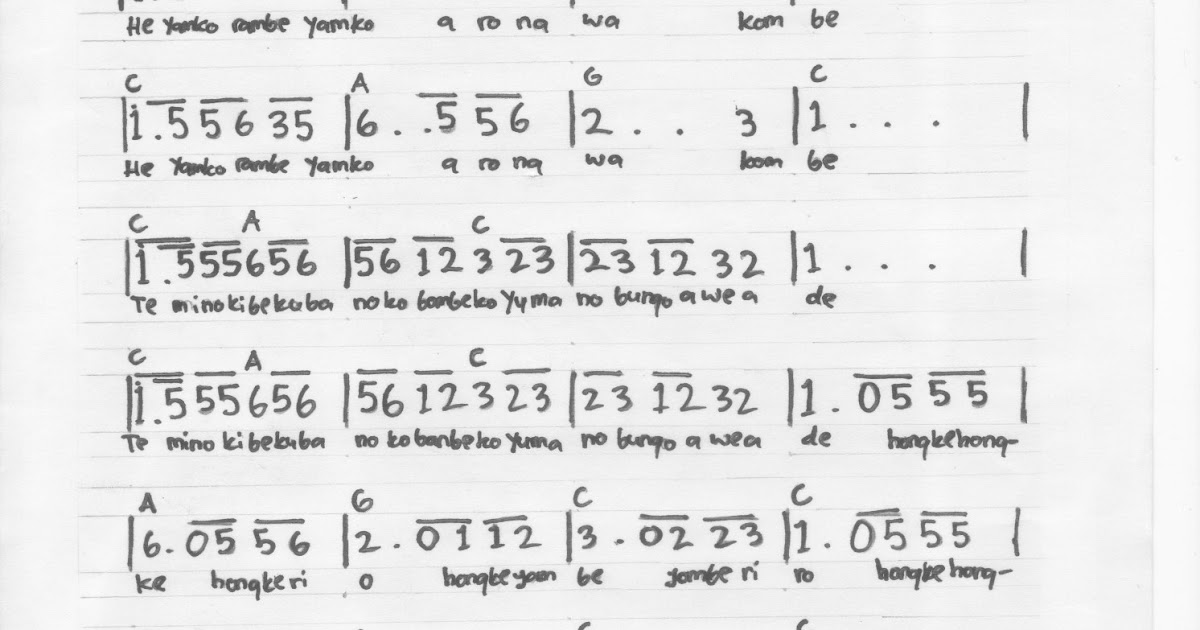 He Yamko rambe Yamko a ro na wa kom be
C A G C
|1 . 5 5 6 3 5 |6 . . 5 5 6 |2 . . 3 |1 . . . |
He Yamko rambe Yamko a ro na wa kom be
C A C
|1 . 5 5 5 6 5 6 |5 6 1 2 3 2 3 |2 3 1 2 3 2 |1 . . . |
Te mino kibekuba no ko banbeko Yuma no bungo a we a de
C A C
|1 . 5 5 5 6 5 6 |5 6 1 2 3 2 3 |2 3 1 2 3 2 |1 . 0 5 5 5 |
Te mino kibekuba no ko banbeko Yuma no bungo a we a de hongkehong-
A G C C
|6 . 0 5 5 6 |2 . 0 1 1 2 |3 . 0 2 2 3 |1 . 0 5 5 5 |
ke hongke ri o hongke yom be yombe ri ro hongkehong-